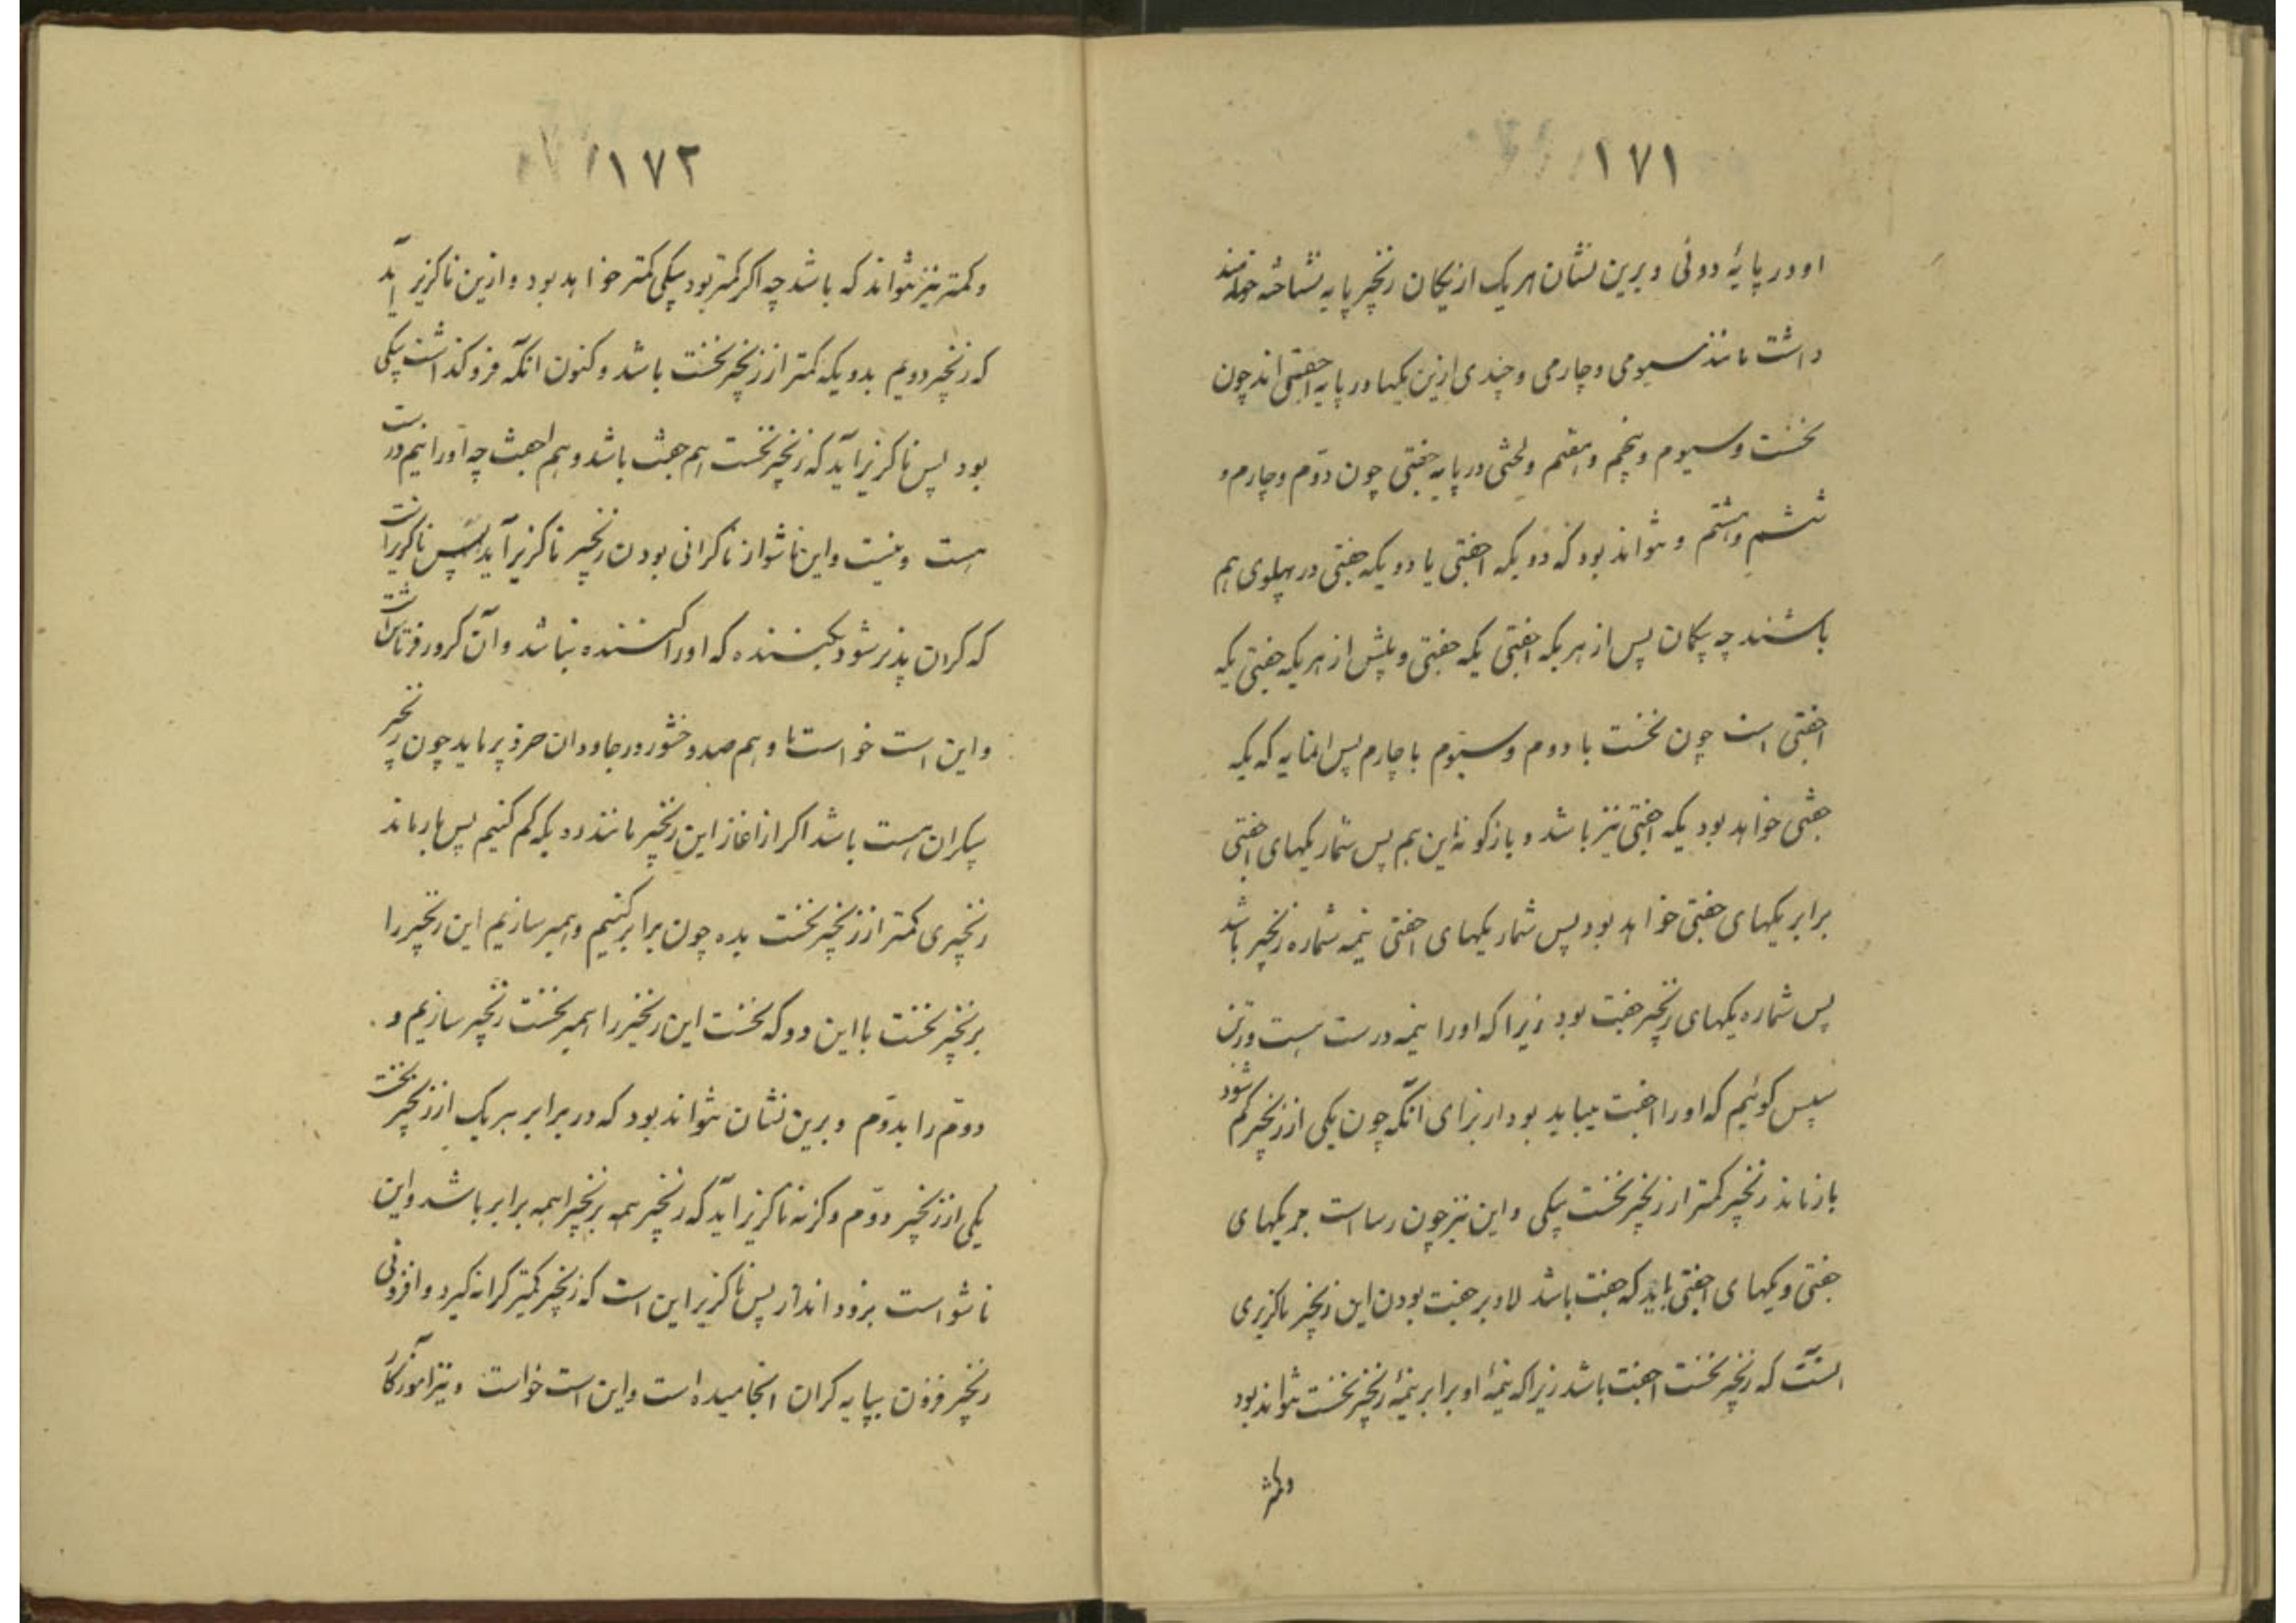 ۱۷۱
او در پایهٔ دوئی و برین نشان هر یک از یکان زنجیر پایه شناخته خواهند
داشت مانند سیومی و چارمی و چندی ازین یکها در پایه اجفتی اند چون
نخست و سیوم و پنجم و هفتم و لختی در پایه جفتی چون دوّم و چارم و
ششم و هشتم و نتواند بود که دو یکه اجفتی یا دو یکه جفتی در پهلوی هم
باشند چه یکان پس از هر یکه اجفتی یکه جفتی و پیش از هر یکه جفتی یکه
اجفتی است چون نخست با دوم و سیّوم با چارم پس بهر پایه که یکه
جفتی خواهد بود یکه اجفتی نیز باشد و بازگونهٔ این هم پس شمار یکهای اجفتی
برابر یکهای جفتی خواهد بود پس شمار یکهای اجفتی نیمه شماره زنجیر باشد
پس شماره یکهای زنجیر جفت بود زیرا که او را نیمه درست هست و زین
سپس گوئیم که او را اجفت میباید بود از برای آنکه چون یکی از زنجیر کم شود
بازماند زنجیر کمتر از زنجیر نخست بیکی و این نیز چون رسا است بر یکهای
جفتی و یکهای اجفتی باید که جفت باشد لاد بر جفت بودن این زنجیر ناگزیری
است که زنجیر نخست اجفت باشد زیرا که نیمهٔ او برابر نیمهٔ زنجیر نخست نتواند بود
و کمتر
۱۷۲
و کمتر نیز نتواند که باشد چه اگر کمتر بود بیکی کمتر خواهد بود و ازین ناگزیر آید
که زنجیر دویم بدو یکه کمتر از زنجیر نخست باشد و کنون آنکه فروگذاشت بیکی
بود پس ناگزیر آید که زنجیر نخست هم جفت باشد و هم اجفت چه او را نیم درست
هست و نیست و این ناشو از ناکرانی بودن زنجیر ناگزیر آید پس ناگزیر است
که کران پذیر شود بکننده که او را کننده نباشد و آن گرور فرتاش است
و این است خواست ما و هم صد و خشور در جاودان خرد فرماید چون زنجیر
بیکران هست باشد اگر از آغاز این زنجیر مانند ده یکه کم کنیم پس باز ماند
زنجیری کمتر از زنجیر نخست بده چون برابر کنیم و همبر سازیم این زنجیر را
بزنجیر نخست با این رو که نخست این زنجیر را همبر نخست زنجیر سازیم و
دوّم را بدوّم و برین نشان نتواند بود که در برابر هر یک از زنجیر نخست
یکی از زنجیر دوّم وگرنه ناگزیر آید که زنجیر همه بزنجیر اهمه برابر باشد و این
ناشو است بزود انداز پس ناگزیر این است که زنجیر کمتر کرانه گیرد و افزونی
زنجیر فزون بپایه کران انجامیده است و این است خواست و نیز آموزگار